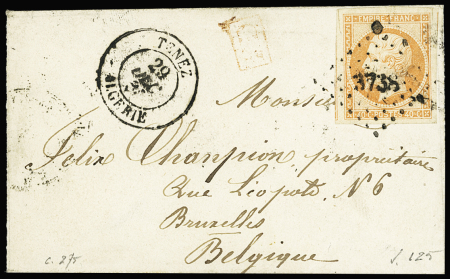 TENEZ
29
ALGERIE
EMPIRE FRANC
3738
40 C
Monsieur
Felix Champion, propriétaire
Rue Léopold N 6
Bruxelles
Belgique
c. 275
J. 125